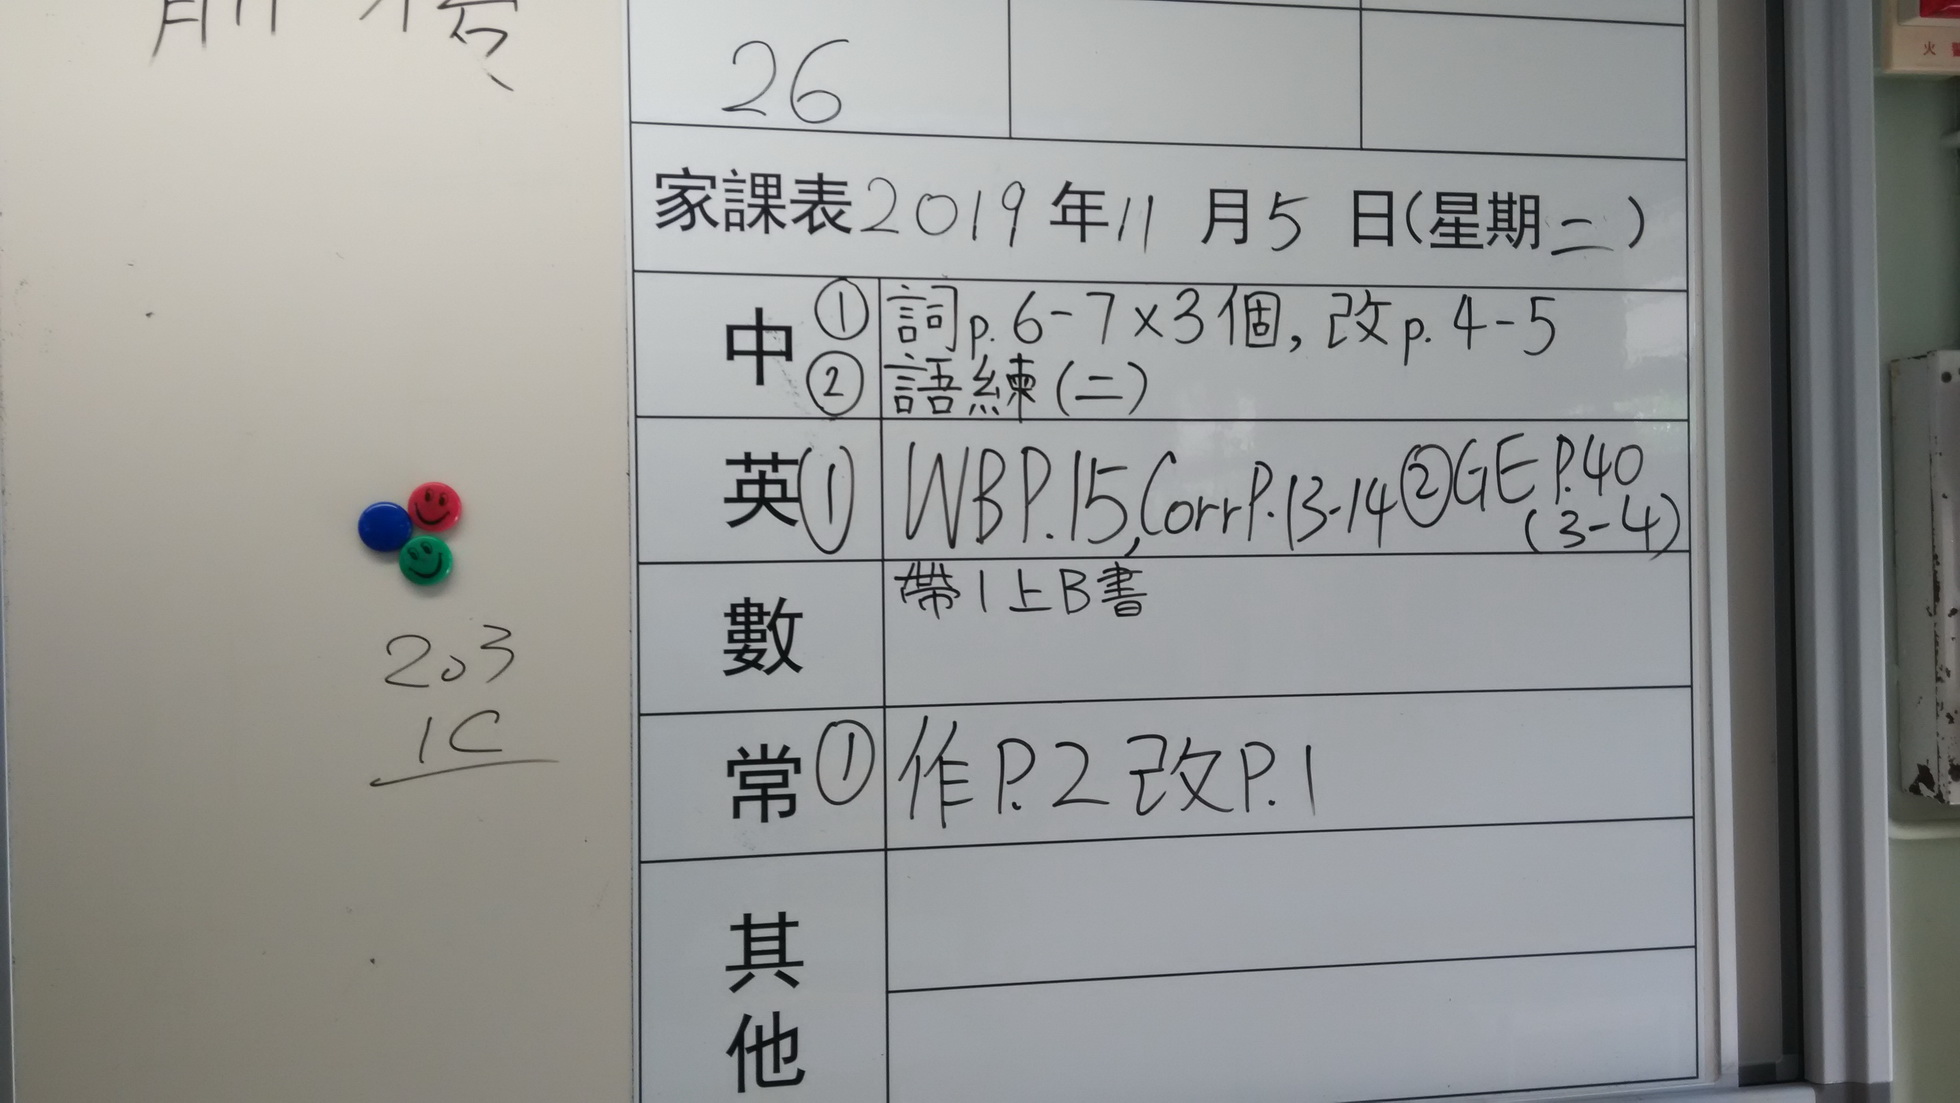 26
家課表2019年11月5日(星期二)
中 ① 詞p.6-7×3個,改p.4-5
② 語練(二)
英 ① WBP.15,CorrP.13-14 ②GE P.40
(3-4)
數 帶1上B書
常 ① 作P.2 改P.1
其
他
203
1C
火